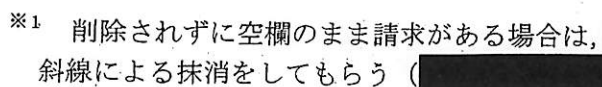 ※1 削除されずに空欄のまま請求がある場合は,
斜線による抹消をしてもらう(